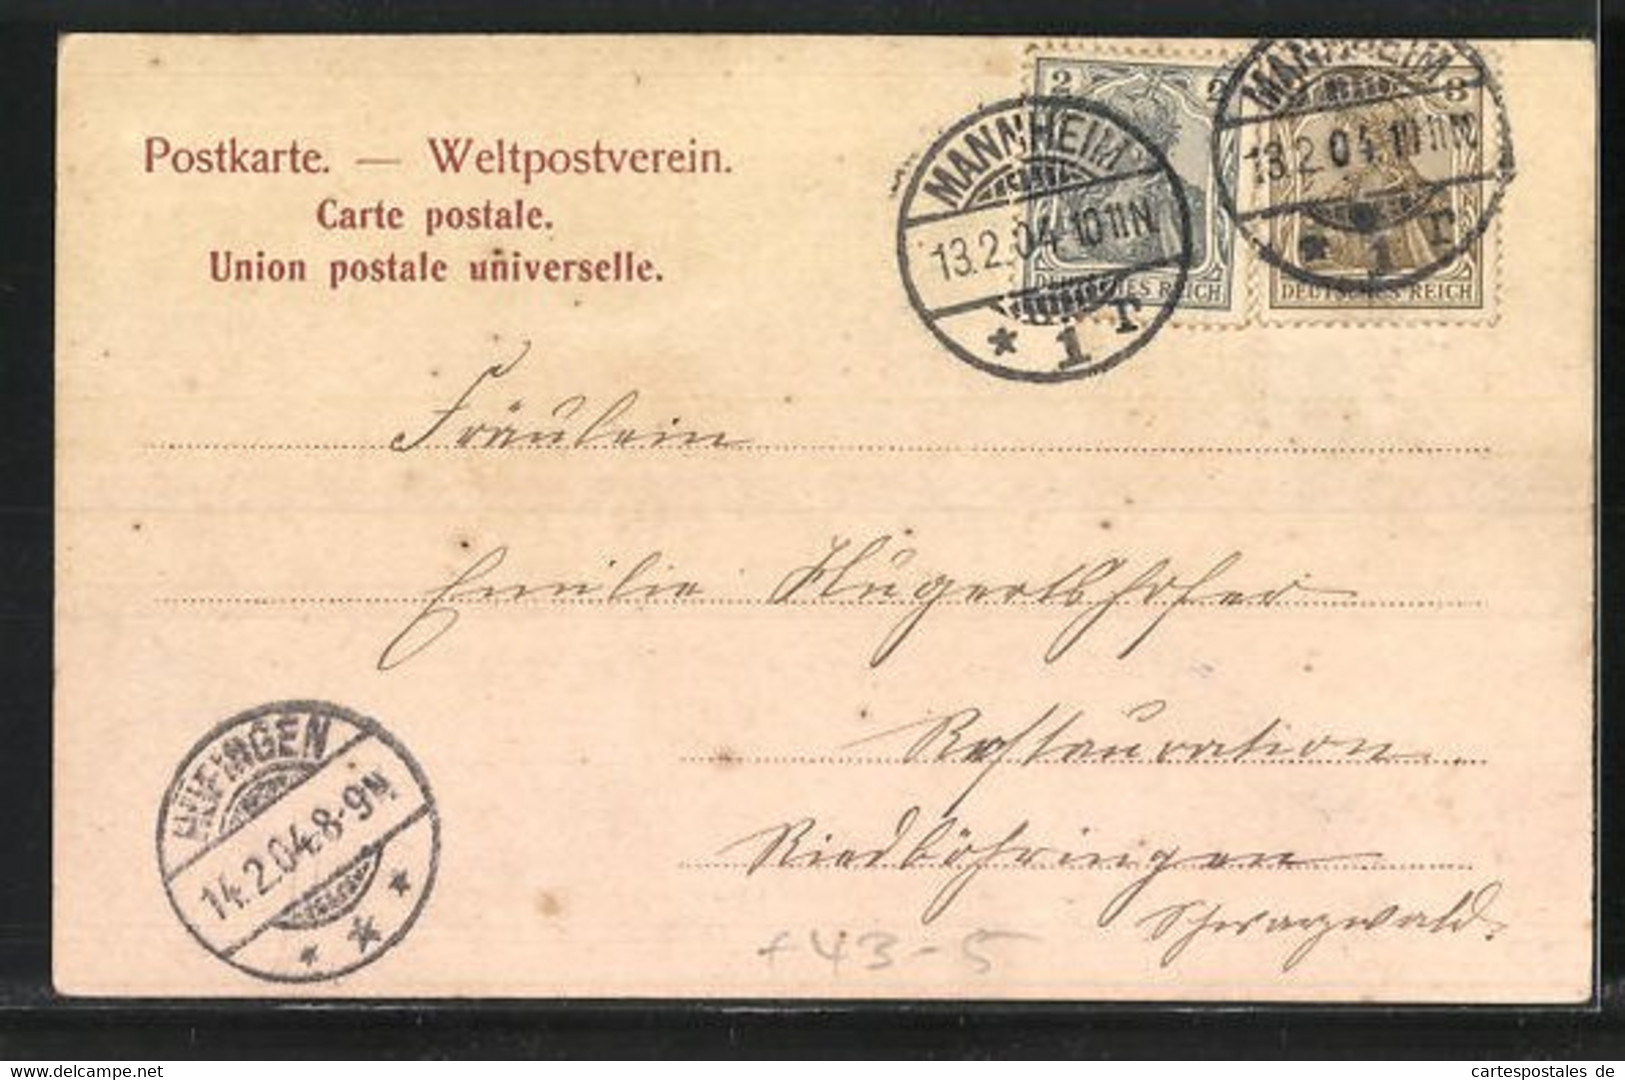 Postkarte. — Weltpostverein.
Carte postale.
Union postale universelle.
2 2
DEUTSCHES REICH
3
DEUTSCHES REICH
MANNHEIM
13.2.04.10-11N
* 1 r
MANNHEIM
13.2.04.10-11N
* 1 r
Fräulein
Emilie
Restauration
Riedböhringen
Schwarzwald.
HÜFINGEN
14.2.04.8-9N
* * *
+43-5
www.delcampe.net
cartespostales de